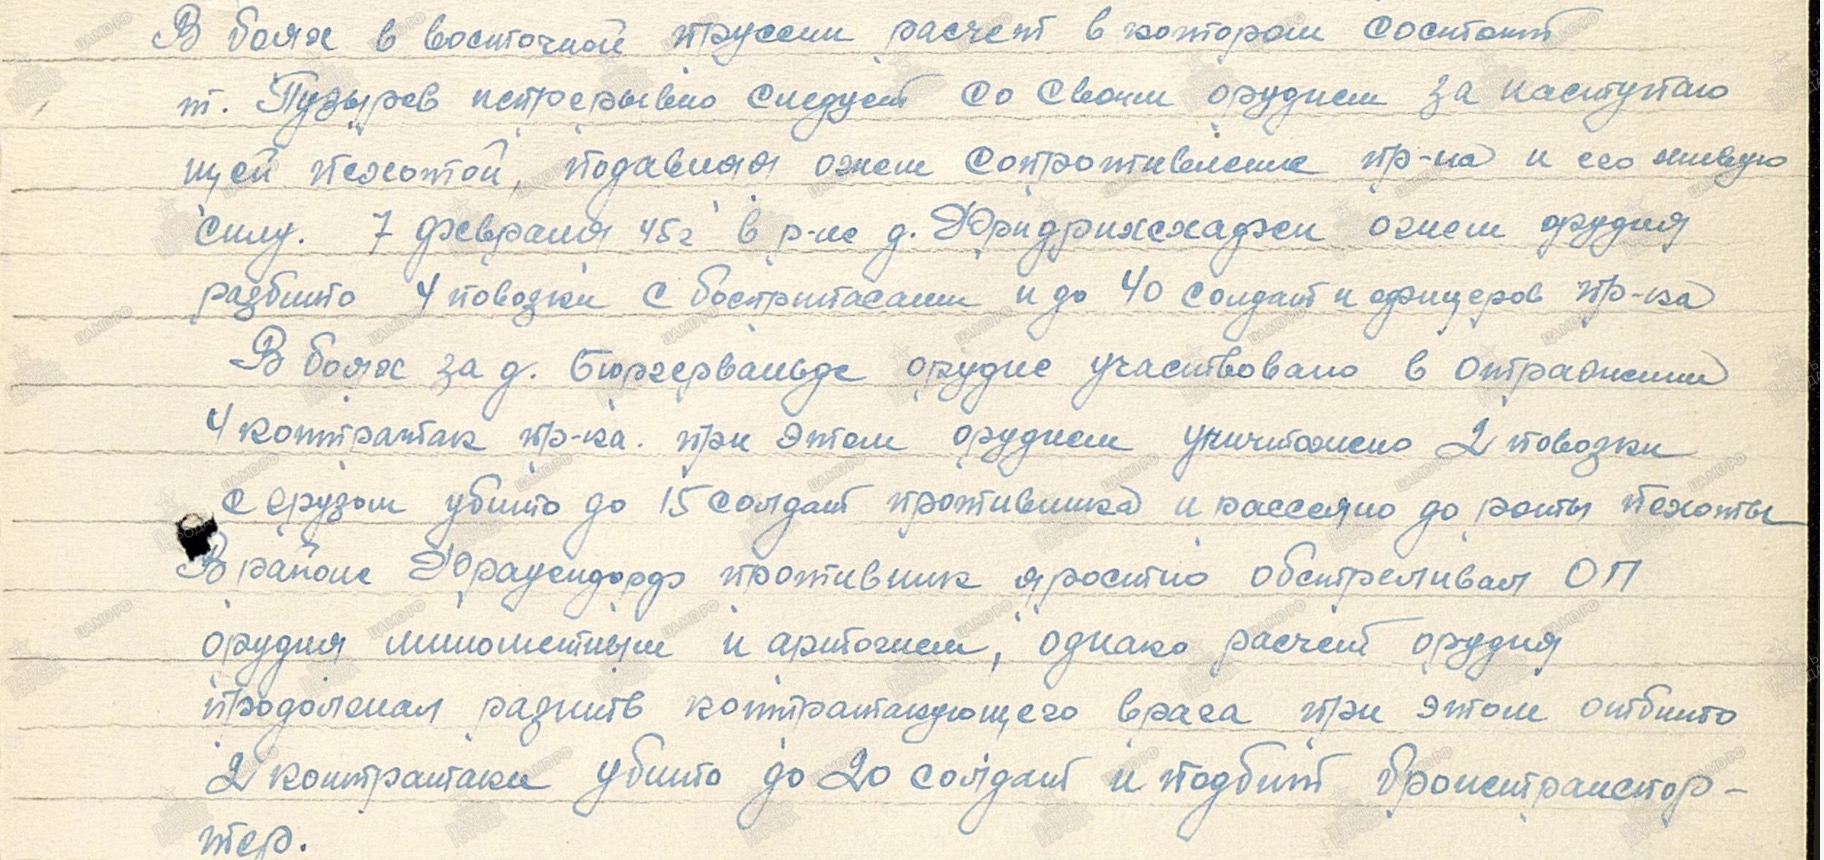 В боях в восточной пруссии расчет в котором состоит
т. Пузырев непрерывно следует со своим орудием за наступаю
щей пехотой, подавляя огнем сопротивление пр-ка и его живую
силу. 7 февраля 45г в р-не д. Фридрихсхафен огнем орудия
разбито 4 повозки с боеприпасами и до 40 солдат и офицеров пр-ка
В боях за д. Бюргервальде орудие участвовало в отражении
4 контратак пр-ка. при этом орудием уничтожено 2 повозки
с грузом убито до 15 солдат противника и рассеяно до роты пехоты
В районе Фрауендорф противник яростно обстреливал ОП
орудия минометным и артогнем, однако расчет орудия
продолжал разить контратакующего врага при этом отбито
2 контратаки убито до 20 солдат и подбит бронетранспор-
тер.